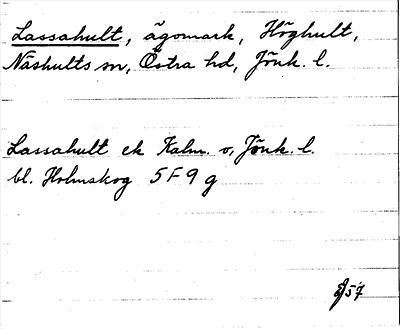 Lassahult, ägomark, Höghult,
Näshults sn, Östra hd, Jönk. l.
Lassahult ek Kalm. o, Jönk. l.
bl. Holmskog 5F9g
57